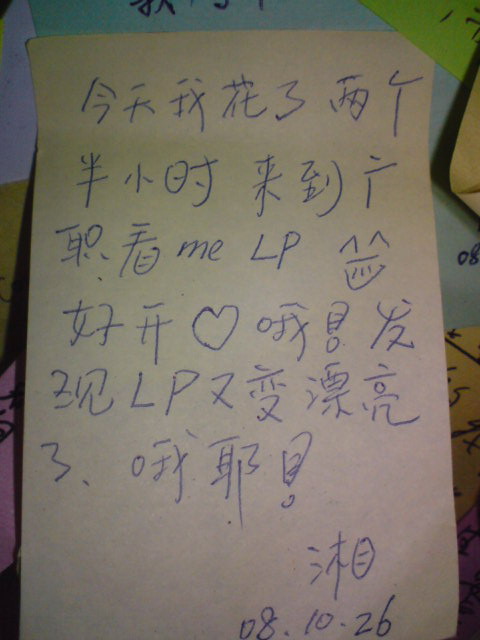 今天我花了两个
半小时 来到广
职看me LP
好开♡哦! 发
现LP又变漂亮
了、哦耶!
湘
08.10.26
08